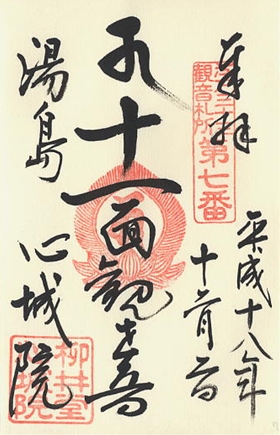 奉拝
江戸三十三
観音札所
第七番
平成十八年
十一面観世音
湯島
心城院
柳井堂
心城院